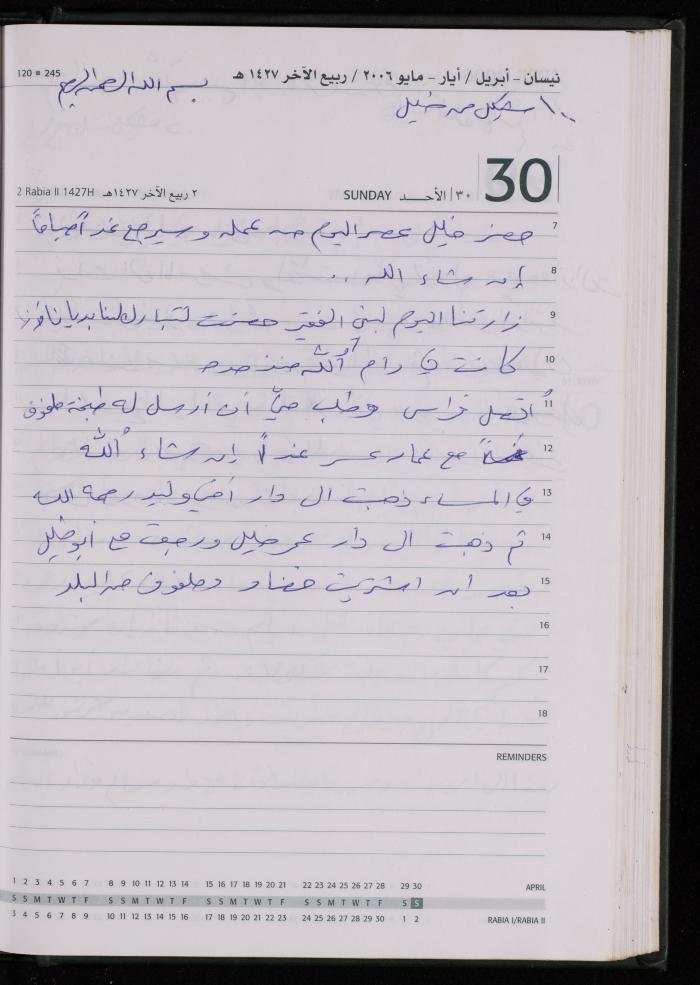 نيسان - أبريل / أيار - مايو ٢٠٠٦ / ربيع الآخر ١٤٢٧ هـ
120 ▪ 245
بسم الله الرحمن الرحيم
١٠٠ شيكل من خليل
30
SUNDAY الأحـــد |٣٠
٢ ربيع الآخر ١٤٢٧هـ 2 Rabia II 1427H
7 حضر خليل عصر اليوم من عمله وسيرجع غداً صباحاً
8 إن شاء الله ..
9 زارتنا اليوم لبنى الفقير حضرت لتبارك لنا
10 كانت في رام الله منذ مدة
11 اتصل فراس وطلب مني أن أرسل له طبخة ملفوف
12 مع عمار غداً إن شاء الله
13 في المساء ذهبت الى دار أخي وليد رحمه الله
14 ثم ذهبت الى دار عمر خليل ورجعت مع أبو خليل
15 بعد أن اشتريت خضار وملفوف من البلد
16
17
18
REMINDERS
1 2 3 4 5 6 7 8 9 10 11 12 13 14 15 16 17 18 19 20 21 22 23 24 25 26 27 28 29 30 APRIL
S S M T W T F S S M T W T F S S M T W T F S S M T W T F S S
3 4 5 6 7 8 9 10 11 12 13 14 15 16 17 18 19 20 21 22 23 24 25 26 27 28 29 30 1 2 RABIA I/RABIA II